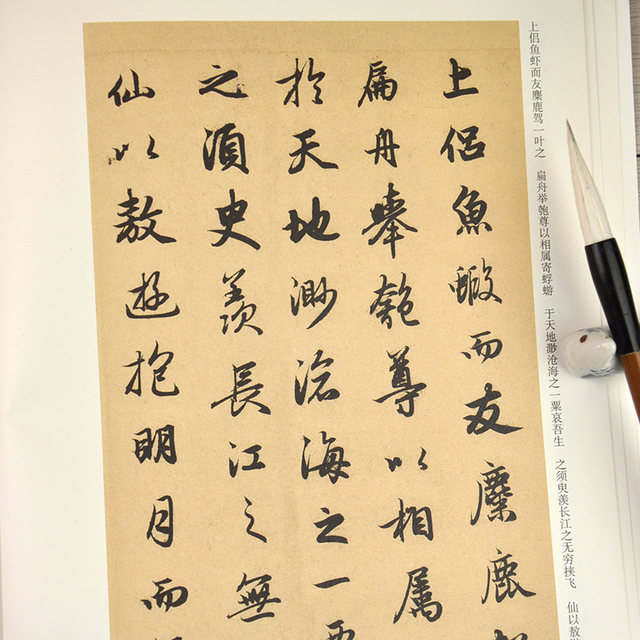 上侣鱼虾而友麋鹿驾一叶之 扁舟举匏尊以相属寄蜉蝣 于天地渺沧海之一粟哀吾生 之须臾羡长江之无穷挟飞 仙以敖
上侣魚蝦而友麋鹿
扁舟舉匏尊以相属
於天地渺滄海之一
之須臾羨長江之無
仙以敖遊抱明月而